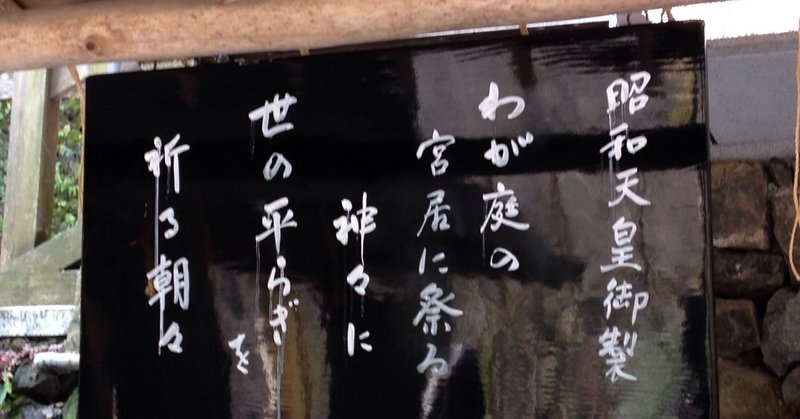 昭和天皇御製
わが庭の
宮居に祭る
神々に
世の平らぎを
祈る朝々